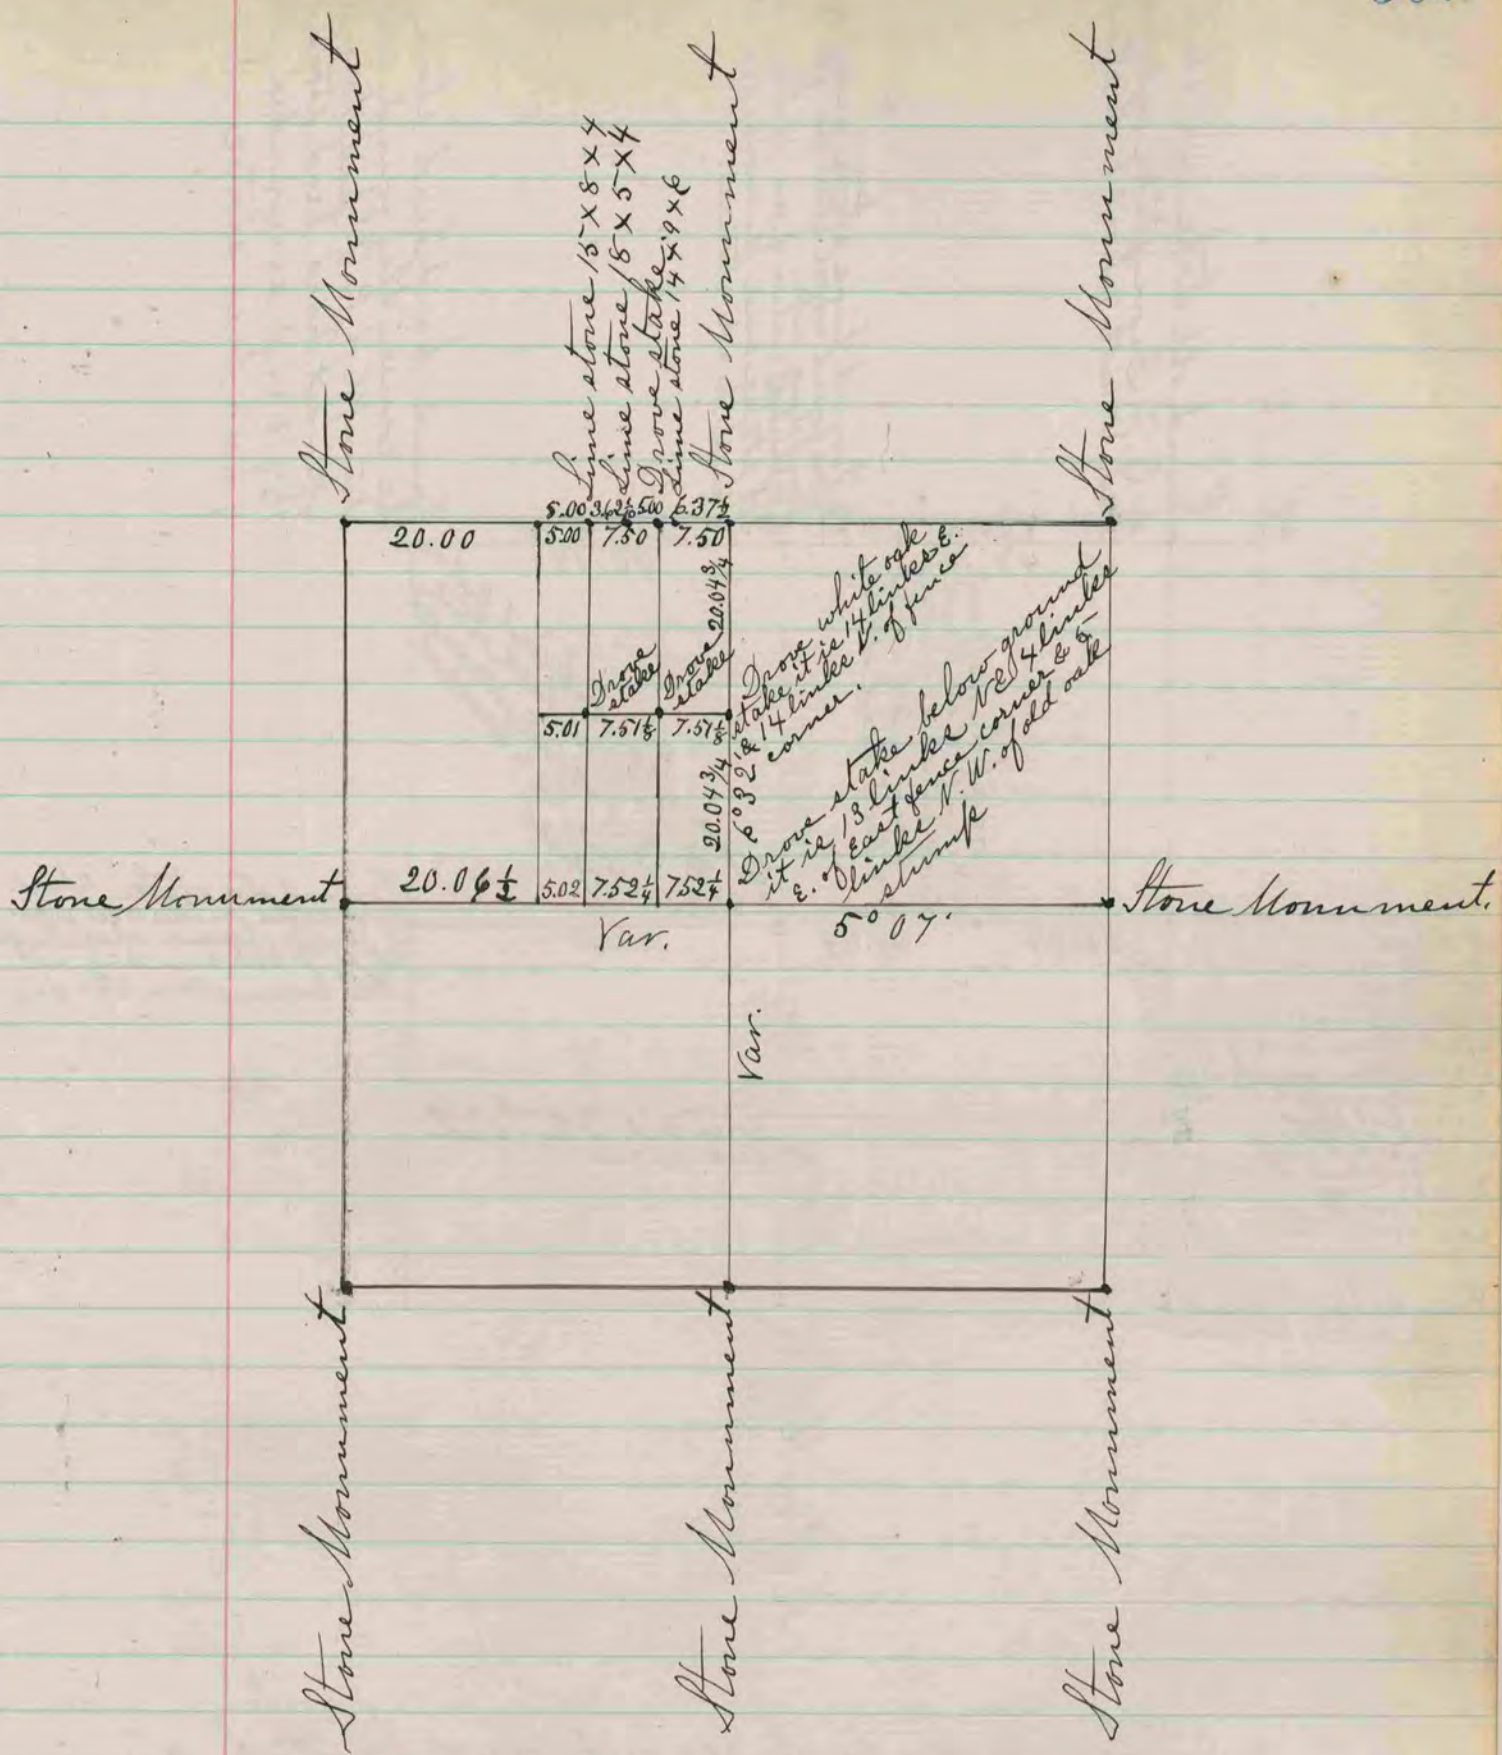 Stone Monument
Lime stone 15 X 8 X 4
Lime stone 18 X 5 X 4
Drove stake
Lime stone 14 x 9 x 6
Stone Monument
Stone Monument
5.00 3.62½ 5.00 6.37½
20.00 5.00 7.50 7.50
20.04¾
Drove
stake
Drove
stake
5.01 7.51⅛ 7.51⅛
20.04¾
6° 32'
Drove white oak
stake it is 14 links E.
& 14 links N. of fence
corner.
Drove stake below ground
it is 13 links N & 4 links
E. of east fence corner & 5
links N. W. of old oak
stump
Stone Monument 20.06½ 5.02 7.52¼ 7.52¼ Stone Monument.
Var. 5° 07'
Var.
Stone Monument
Stone Monument
Stone Monument